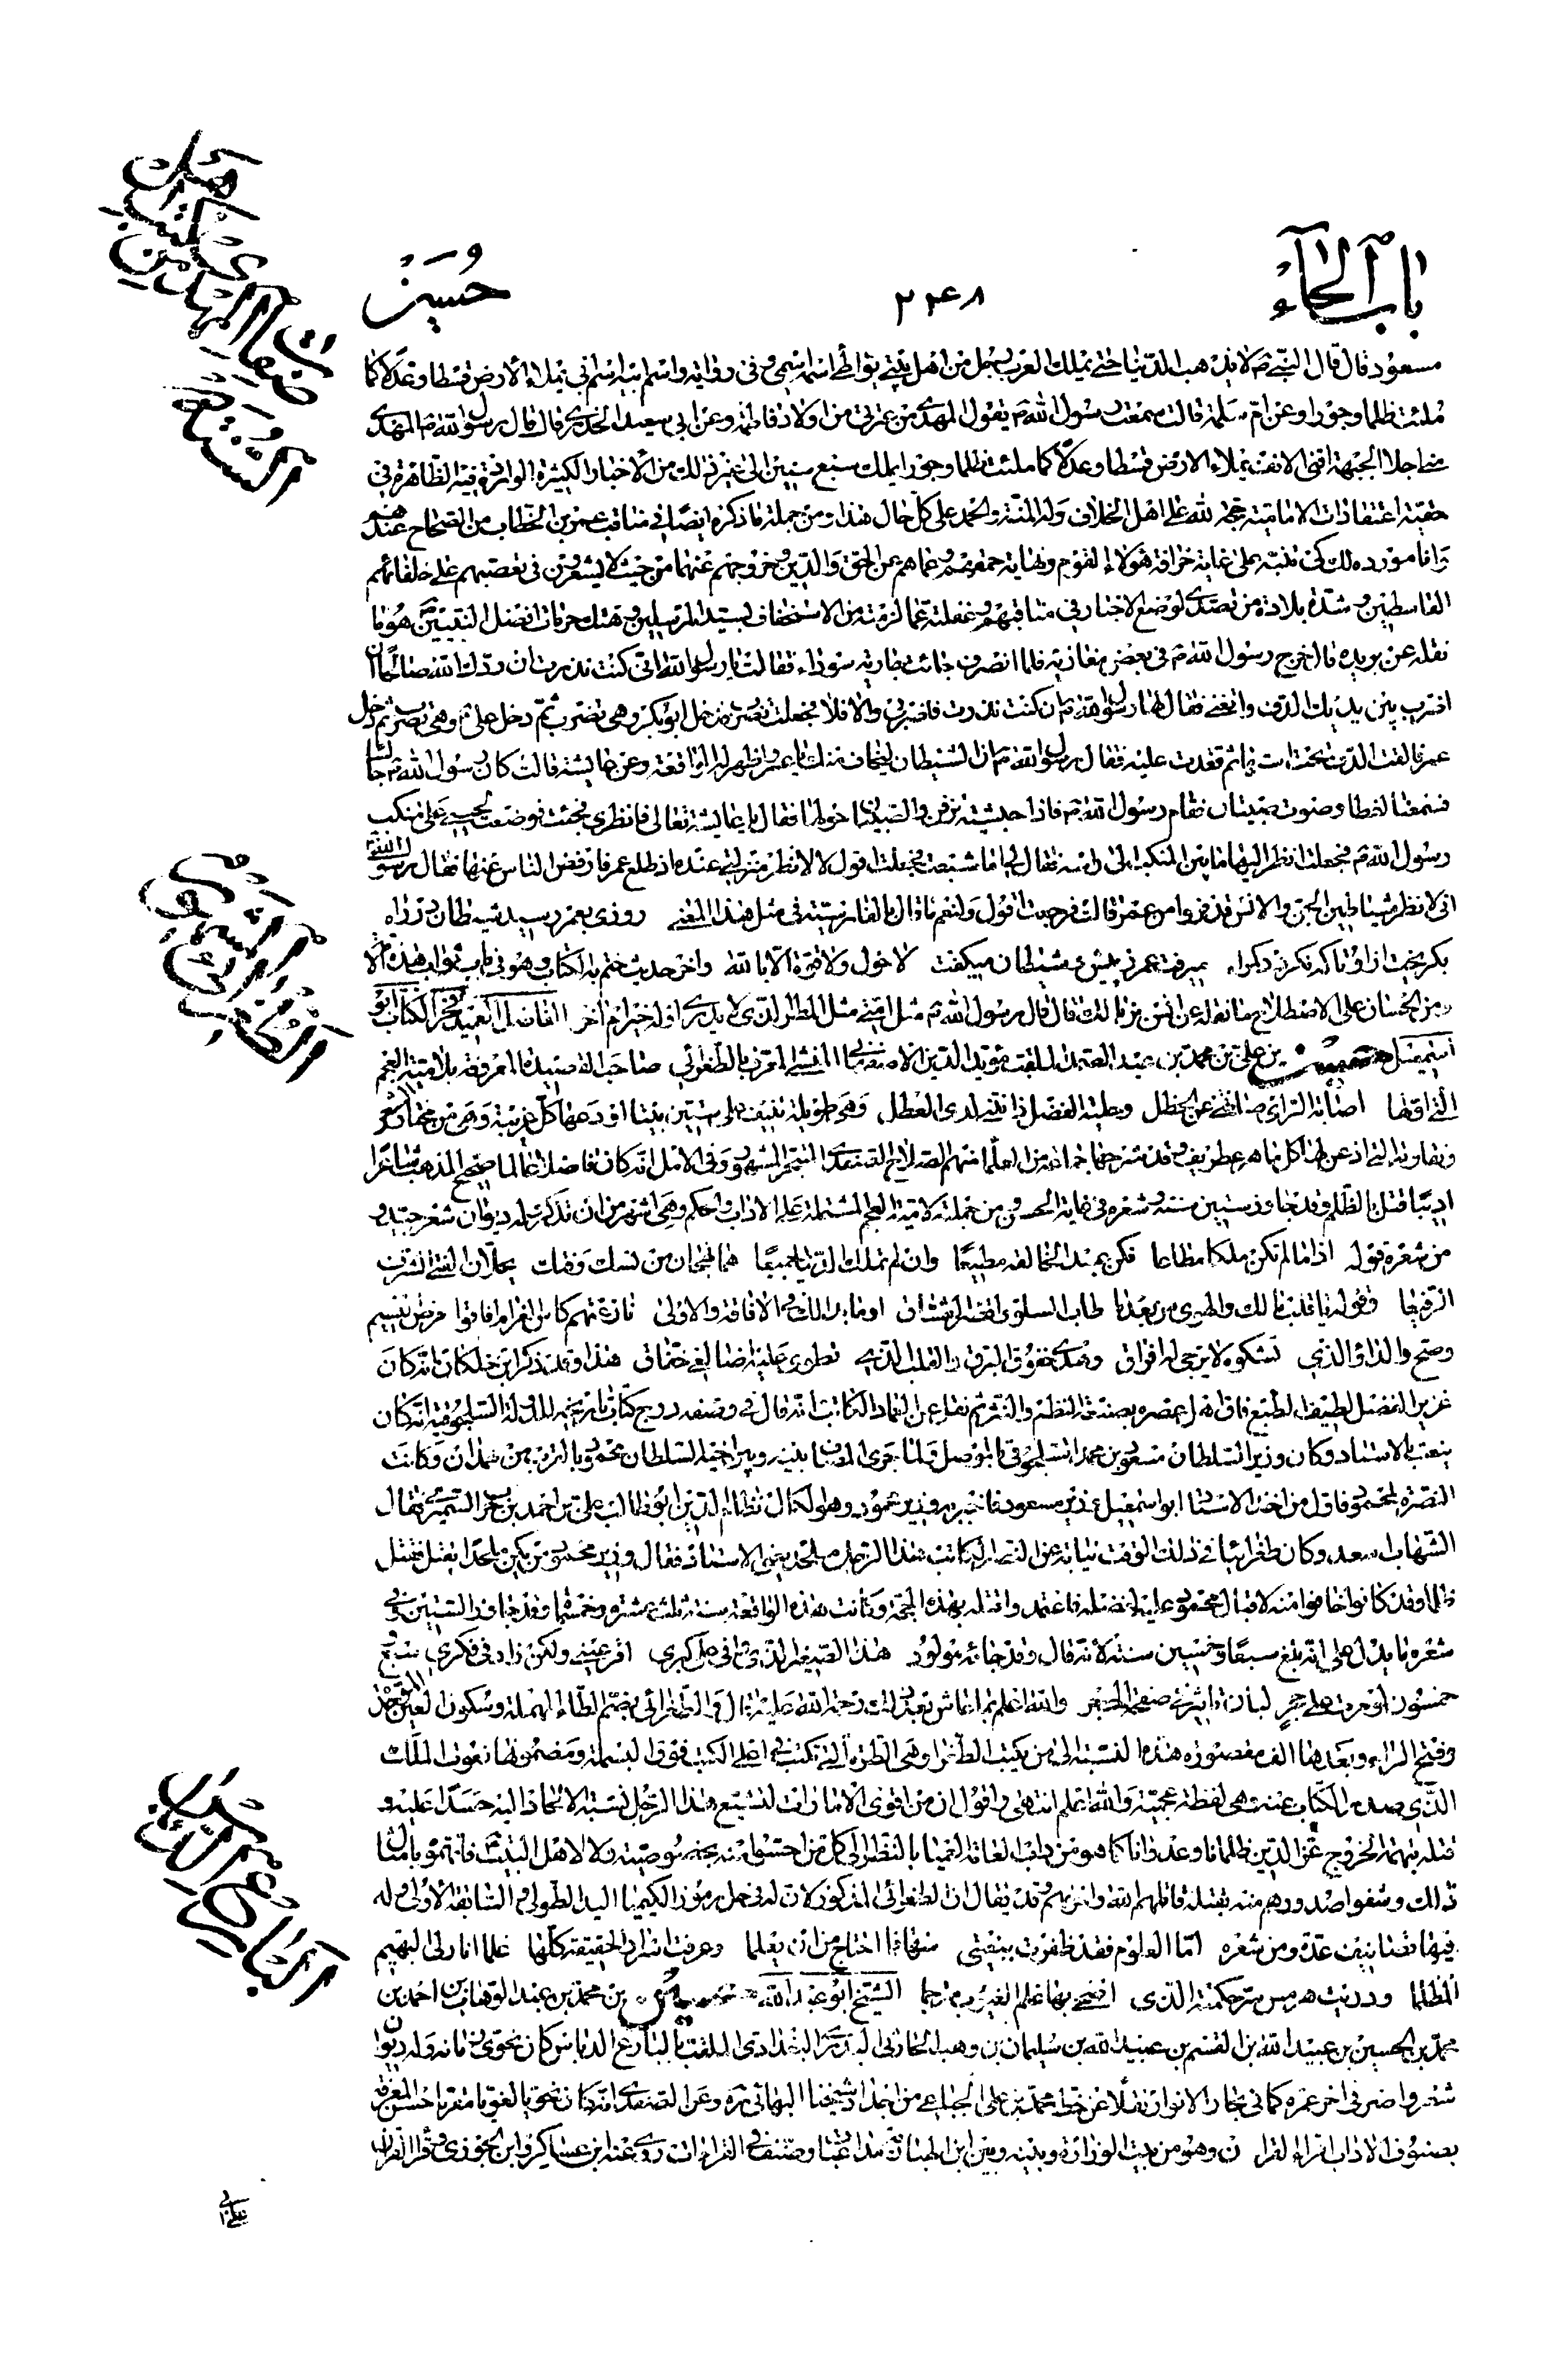 باب الحاء
۲۴۸
حسين
مسعود قال قال النبي ص لا يذهب الدنيا حتى يملك العرب رجل من اهل بيتي يواطئ اسمه اسمي وفي رواية واسم ابيه اسم ابي يملاء الأرض قسطا وعدلا كما
ملئت ظلما وجورا وعن ام سلمة قالت سمعت رسول الله ص يقول المهدي من عترتي من اولاد فاطمة وعن ابي سعيد الخدري قال قال رسول الله ص المهدي
مني اجلا الجبهة اقنى الانف يملاء الارض قسطا وعدلا كما ملئت ظلما وجورا يملك سبع سنين الى غير ذلك من الأخبار الكثيرة الظاهرة في
حقية اعتقادات الامامية حجة لله على اهل الخلاف وله المنة والحمد على كل حال هذا ومن جملة ما ذكره ايضا في مناقب عمر بن الخطاب من الصحاح عندهم
وانا مورده لك كي تنبه على غاية خرافة هؤلاء القوم ونهاية حمقهم وعماهم عن الحق والدين وخروجهم عنهما من حيث لا يشعرون في تعصبهم على خلفائهم
القاسطين وشدة بلادة من تصدى لوضع الاخبار في مناقبهم وغفلته عما لزمته من الاستخفاف بسيد المرسلين وهتك حرمات افضل النبيين هو ما
نقله عن بريده قال خرج رسول الله ص في بعض مغازيه فلما انصرف جائت جارية سوداء فقالت يا رسول الله اني كنت نذرت ان ردك الله صالحا ان
اضرب بين يديك الدف واتغنى فقال لها رسول الله ص ان كنت نذرت فاضربي والا فلا فجعلت تضرب فدخل ابو بكر وهي تضرب ثم دخل علي وهي تضرب ثم دخل
عمر فالقت الدف تحت استها ثم قعدت عليه فقال رسول الله ص ان الشيطان ليخاف منك يا عمر وعن عايشة قالت كان رسول الله ص جالسا
فسمعنا لغطا وصوت صبيان فقام رسول الله ص فاذا حبشية تزفن والصبيان حولها فقال يا عايشة تعالى فانظري فجئت فوضعت لحيي على منكب
رسول الله ص فجعلت انظر اليها ما بين المنكب الى راسه فقال لي اما شبعت فجعلت اقول لا لانظر منزلتي عنده اذ طلع عمر فارفض الناس عنها فقال رسول الله
اني لانظر شياطين الجن والانس قد فروا من عمر قالت فرجعت اقول ولنعم ما قال بالفارسية في مثل هذا المعنى روزی بعمر رسید شیطان در راه
بگریخت از او تا که نگردد گمراه میرفت عمر ز پیش و شیطان میگفت لا حول ولا قوة الا بالله واخر حديث ختم به الكتاب وهو في باب ثواب هذه الامة
ومن الحسان على الاصطلاح ما نقله عن انس بن مالك قال قال رسول الله ص مثل امتي مثل المطر لا يدرى اوله خير ام آخره الفاضل العميد فخر الكتاب ابو
اسمعيل حسين بن علي بن محمد بن عبد الصمد الملقب مؤيد الدين الاصفهاني المنشي المعروف بالطغرائي صاحب القصيدة المعروفة بلامية العجم
التي اولها اصالة الرأي صانتني عن الخطل وحلية الفضل زانتني لدى العطل وهي طويلة تنيف على ستين بيتا اودعها كل غريبة وهي من مختار شعره
ونقاوته التي اذعن لها كل ماهر عطريف وقد شرحها جماعة من اعلامهم منهم الصلاح الصفدي المتبحر المشهور وفي الأمل انه كان فاضلا عالما صحيح المذهب شاعرا
اديبا قتل بالظلم وقد جاوز ستين سنة وشعره في غاية الحسن ومن جملته لامية العجم المشتملة على الاداب والحكم وهي اشهر من ان تذكر وله ديوان شعر جيد و
من شعره قوله اذا ما لم تكن ملكا مطاعا فكن عبدا لخالقه مطيعا وان لم تملك الدنيا جميعا هما نهجان من نسك وفتك يحلان الفتى الشرف
الرفيعا وقوله يا قلب مالك والهوى من بعد ما طاب السلو واقصر العشاق اوما بدا لك في الافاقة والاولى نازعتهم كاس الغرام افاقوا مرض نسيم
وصح والداء الذي تشكوه لا يرجى له افراق وهدى خفوق البرق والقلب الذي تطوى عليه اضالعي خفاق هذا وقد ذكر ابن خلكان انه كان
غزير الفضل لطيف الطبع فاق اهل عصره بصنعة النظم والنثر ثم نقل عن العماد الكاتب انه قال في وصفه درج كتاب تاريخه للدولة السلجوقية انه كان
ينعت بالاستاد وكان وزير السلطان مسعود بن محمد السلجوقي بالموصل ولما جرى المصاف بينه وبين اخيه السلطان محمود بالقرب من همدان وكانت
النصرة لمحمود فاول من اخذ الاستاد ابو اسمعيل وزير مسعود فاخبر به وزير محمود وهو الكمال نظام الدين ابو طالب علي بن احمد بن حرب السميرمي فقال
الشهاب اسعد وكان طغرائيا في ذلك الوقت نيابة عن النصير الكاتب هذا الرجل ملحد يعنى الاستاذ فقال وزير محمود من يكن ملحدا يقتل فقتل
ظلما وقد كانوا خافوا منه لاقبال محمود عليه لفضله فاعتمدوا قتله بهذه الحجة وكانت هذه الواقعة سنة ثلث عشرة وخمسمائة وقد جاوز الستين وفي
شعره ما يدل على انه بلغ سبعا وخمسين سنة لانه قال وقد جائه مولود هذا الصغير الذي وافى على كبري اقر عيني ولكن زاد في فكري سبع و
خمسون لو مرت على حجر لبان تاثيرها في صفحة الحجر والله اعلم بما عاش بعد ذلك رحمة الله عليه قال والطغرائي بضم الطاء المهملة وسكون الغين المعجمة
وفتح الراء وبعدها الف مقصورة هذه النسبة الى من يكتب الطغرا وهي الطرة التي تكتب في اعلى الكتب فوق البسملة ومضمونها نعوت الملك
الذي صدر الكتاب عنه وهي لفظة عجمية والله اعلم انتهى واقول ان من اقوى الامارات لتشيع هذا الرجل نسبة الالحاد اليه حسدا عليه و
قتله بتهمة الخروج عن الدين ظلما وعدوانا كما هو من داب العامة العمياء بالنظر الى كل من احسوا منه بخصوصية ولا لاهل البيت فاتهموه بامثال
ذلك وشفوا صدورهم منه بقتله قاتلهم الله واخزيهم وقد يقال ان الطغرائي المذكور كان له في حل رموز الكيميا اليد الطولى والسابقة الأولى وله
فيها تصانيف عدة ومن شعره اما العلوم فقد ظفرت ببغيتي منها فما احتاج من ان يعلما وعرفت اسرار الحقيقة كلها علما انار لي البهيم
المظلما ودريت هرمس سر حكمته الذي الشيخ ابو عبد الله حسين بن محمد بن عبد الوهاب بن احمد بن
محمد بن الحسين بن عبيد الله بن القسم بن عبيد الله بن سليمان بن وهب الحارثي البدري البغدادي الملقب بالبارع الدباس كان نحوي زمانه وله ديوان
شعر واضر في اخر عمره كما في بحار الانوار نقلا عن خط محمد بن علي الجباعي من اجداد شيخنا البهائي ره وعن الصفدي انه كان نحويا لغويا مقريا حسن المعرفة
بصنوف الاداب اقراء القران وهو من بيت الوزارة وبينه وبين ابن الهبارية مداعبات وصنف في القراءات روى عنه ابن عساكر وابن الجوزي وقرأ القران
على